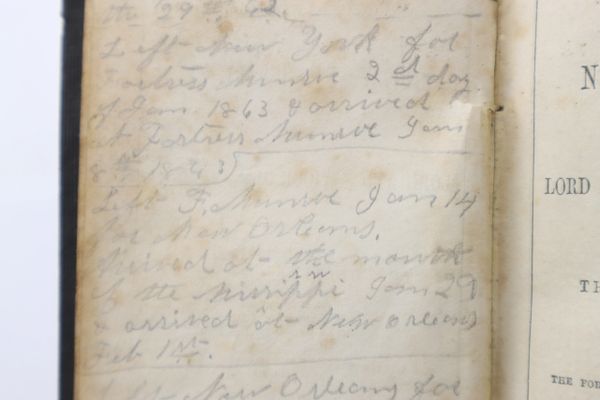 the 29th 62.
Left New York for
Fortress Munroe 2d day
of Jan. 1863 & arrived
at Fortress Munroe Jan
8th 1863
Left F. Munroe Jan 14
for New Orleans.
Arived at the mouth
of the Missippi Jan 29
& arrived at New Orleans
Feb 1st.
Left New Orleans for
N
LORD
TH
THE FOR